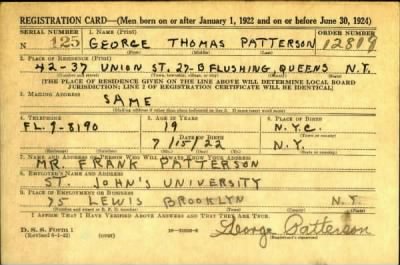 REGISTRATION CARD—(Men born on or after January 1, 1922 and on or before June 30, 1924)
SERIAL NUMBER 1. NAME (Print) ORDER NUMBER
N 125 GEORGE THOMAS PATTERSON 12819
(First) (Middle) (Last)
2. PLACE OF RESIDENCE (Print)
42-37 UNION ST. 27-B FLUSHING, QUEENS N.Y.
[THE PLACE OF RESIDENCE GIVEN ON THE LINE ABOVE WILL DETERMINE LOCAL BOARD
JURISDICTION; LINE 2 OF REGISTRATION CERTIFICATE WILL BE IDENTICAL]
3. MAILING ADDRESS
SAME
[Mailing address if other than place indicated on line 2. If same insert word same]
4. TELEPHONE 5. AGE IN YEARS 6. PLACE OF BIRTH
FL. 9-8190 19 N.Y.C.
DATE OF BIRTH
7/15/22 N.Y.
(Exchange) (Number) (Mo.) (Day) (Yr.) (State or country)
7. NAME AND ADDRESS OF PERSON WHO WILL ALWAYS KNOW YOUR ADDRESS
MR. FRANK PATTERSON
8. EMPLOYER'S NAME AND ADDRESS
ST. JOHN'S UNIVERSITY
9. PLACE OF EMPLOYMENT OR BUSINESS
75 LEWIS BROOKLYN N.Y.
(Number and street or R. F. D. number) (Town) (County) (State)
I AFFIRM THAT I HAVE VERIFIED ABOVE ANSWERS AND THAT THEY ARE TRUE.
D. S. S. Form 1
(Revised 6-1-42) George Patterson
(Registrant's signature)